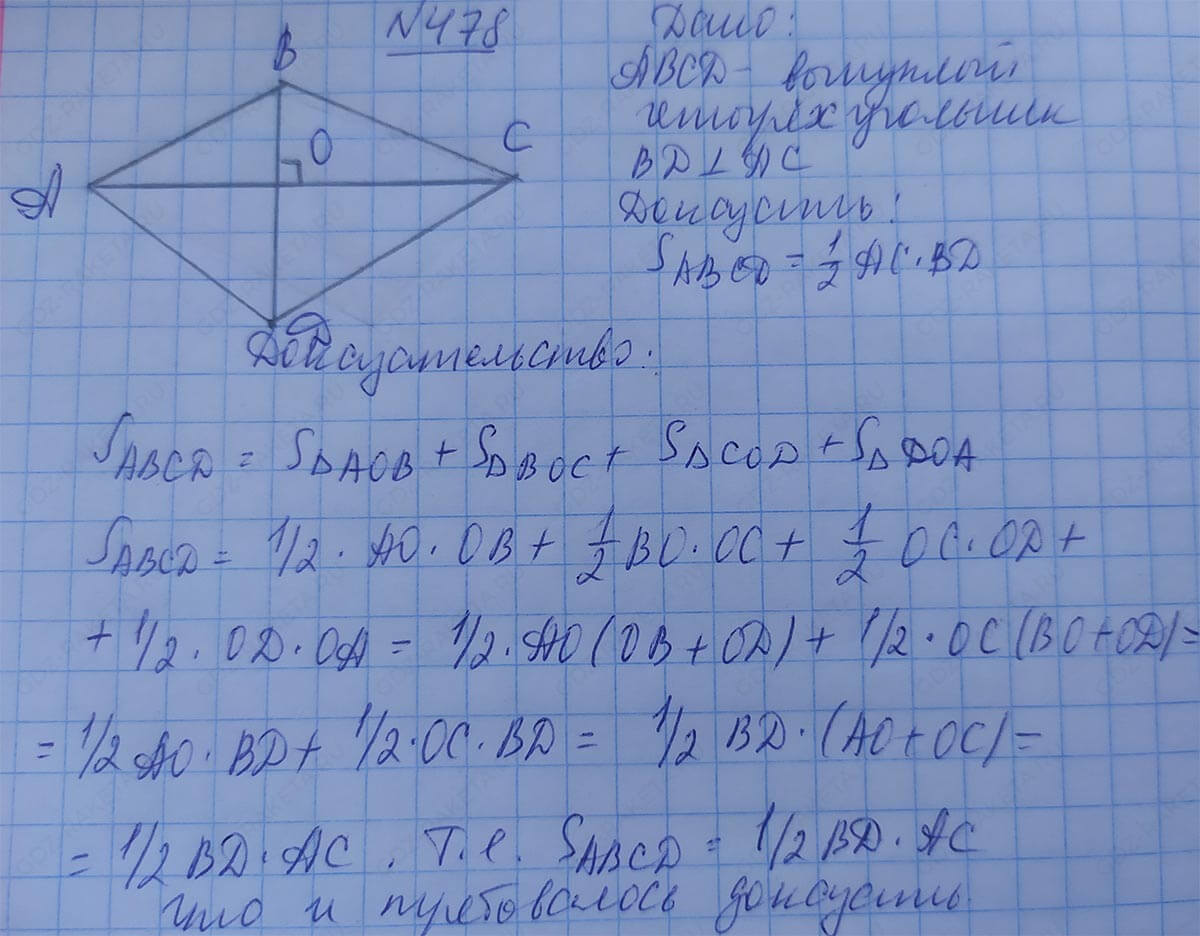 №478
B
O
C
A
D
Дано:
ABCD - выпуклый
четырёхугольник
BD ⊥ AC
Доказать:
S_ABCD = 1/2 AC · BD
Доказательство:
S_ABCD = S_ΔAOB + S_ΔBOC + S_ΔCOD + S_ΔDOA
S_ABCD = 1/2 · AO · OB + 1/2 BO · OC + 1/2 OC · OD +
+ 1/2 · OD · OA = 1/2 · AO (OB + OD) + 1/2 · OC (BO + OD) =
= 1/2 AO · BD + 1/2 · OC · BD = 1/2 BD · (AO + OC) =
= 1/2 BD · AC . Т.е. S_ABCD = 1/2 BD · AC
что и требовалось доказать.